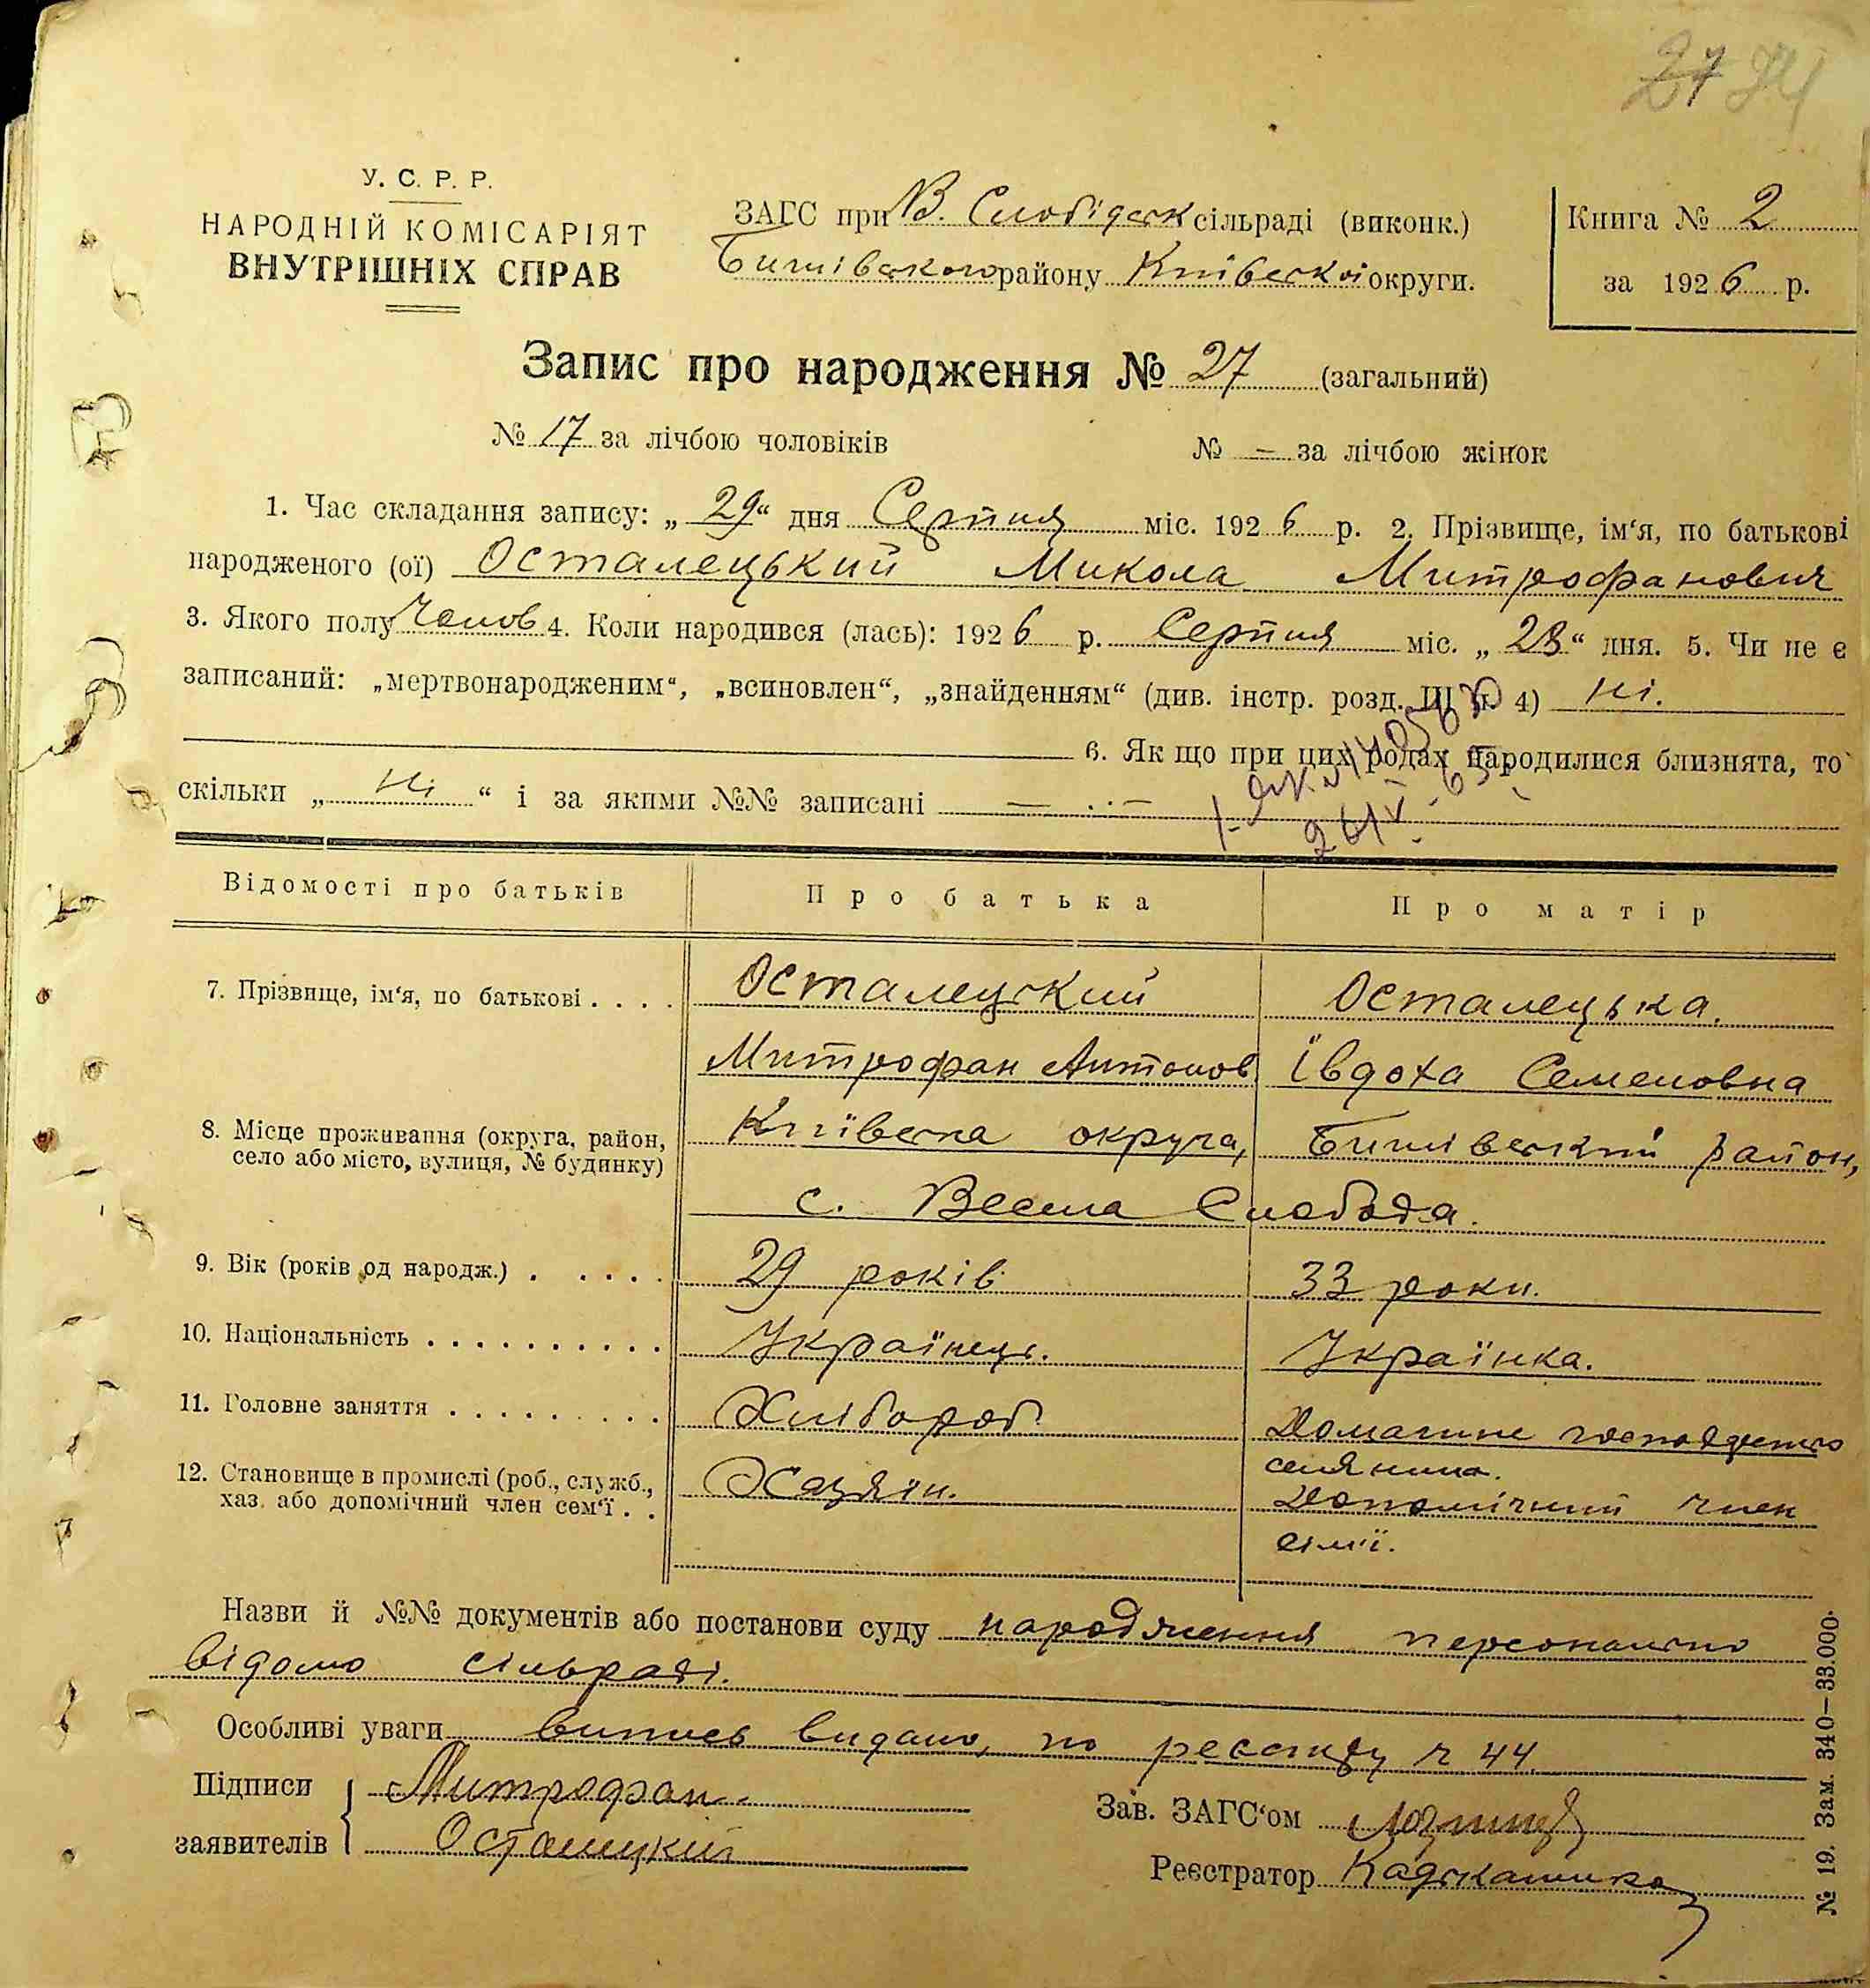 27
У. С. Р. Р.
НАРОДНІЙ КОМІСАРІЯТ
ВНУТРІШНІХ СПРАВ
ЗАГС при В. Слобідськ сільраді (виконк.)
Бишівського району Київської округи.
Книга № 2
за 1926 р.
Запис про народження № 27 (загальний)
№ 17 за лічбою чоловіків № — за лічбою жінок
1. Час складання запису: „29“ дня Серпня міс. 1926 р. 2. Прізвище, ім‘я, по батькові
народженого (ої) Осталецький Микола Митрофанович
3. Якого полу Чолов 4. Коли народився (лась): 1926 р. Серпня міс. „28“ дня. 5. Чи не є
записаний: „мертвонародженим“, „всиновлен“, „знайденням“ (див. інстр. розд. ІІІ п. 4) ні.
6. Як що при цих родах народилися близнята, то
скільки „ні“ і за якими №№ записані —
Відомості про батьків Про батька Про матір
7. Прізвище, ім‘я, по батькові . . . . Осталецький Осталецька.
Митрофан Антонов Ївдоха Семеновна
8. Місце проживання (округа, район, село або місто, вулиця, № будинку) Київська округа, Бишівський район,
с. Весела Слобода.
9. Вік (років од народж.) . . . . . 29 років 33 роки.
10. Національність . . . . . . . . . . Українець. Українка.
11. Головне заняття . . . . . . . . . Хлібороб Домашнє господарство
селянина.
12. Становище в промислі (роб., служб., хаз. або допомічний член сем‘ї . . Хазяїн. Допомічний член
сімї.
Назви й №№ документів або постанови суду народження персонально
відомо сільраді.
Особливі уваги випись видано, по реєстру ч 44.
Підписи Митрофан
заявителів Осталецкий
Зав. ЗАГС‘ом
Реєстратор
№ 19. Зам. 340—33.000.